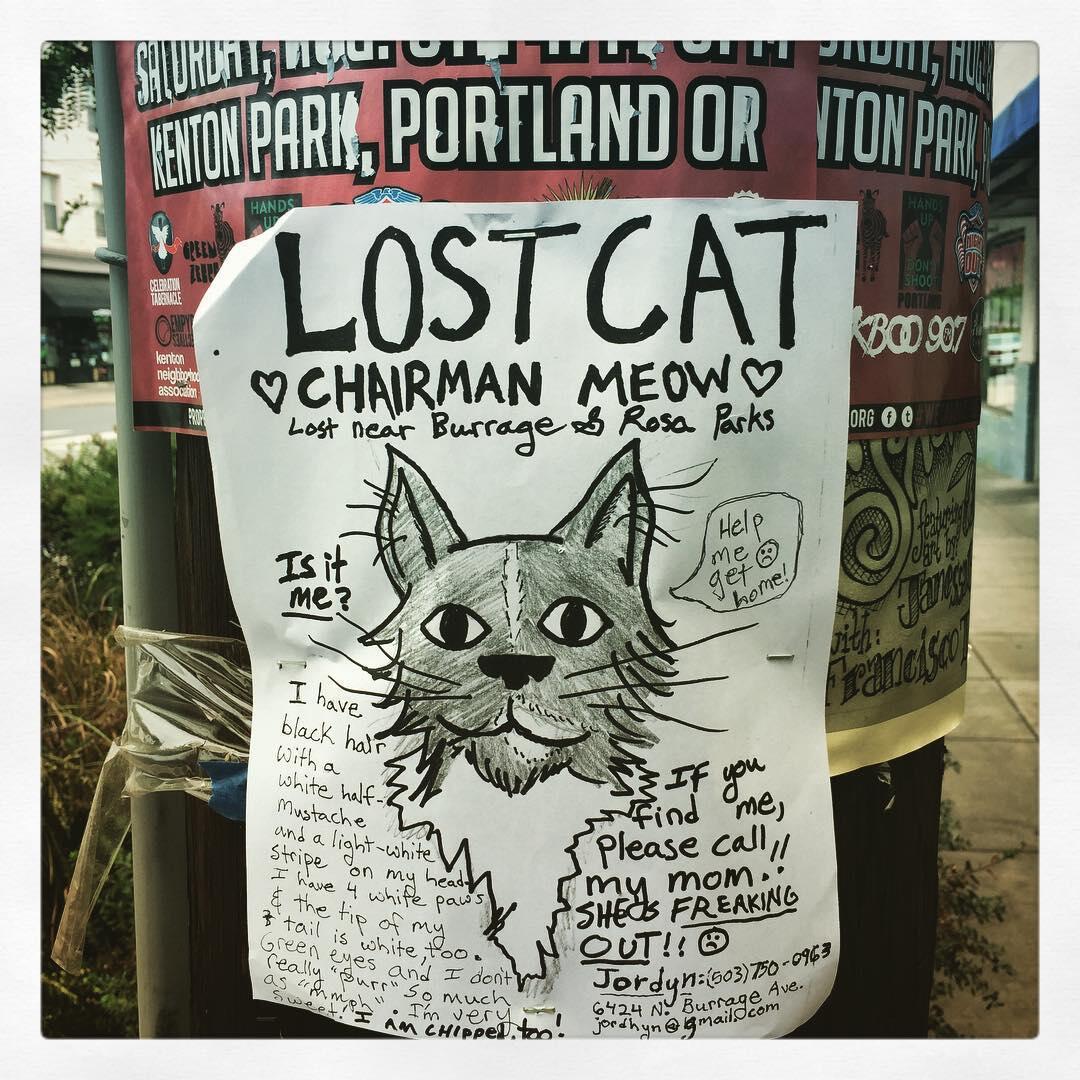 SATURDAY, AUG.
KENTON PARK, PORTLAND OR
NTON PARK,
HANDS
UP
CELEBRATION
TABERNACLE
GREEN
ZEBRA
kenton
neighborhood
association
HANDS
UP
DON'T
SHOOT
PORTLAND
KBOO 90.7
.ORG
LOST CAT
♡ CHAIRMAN MEOW ♡
Lost near Burrage & Rosa Parks
Help
me
get
home!
Is it
me?
I have
black hair
with a
white half-
mustache
and a light-white
stripe on my head
I have 4 white paws
& the tip of my
tail is white, too.
Green eyes and I don't
really "purr" so much
as "mmph" I'm very
sweet. I AM CHIPPED, too!
If you
find me,
please call
my mom..!!
SHE IS FREAKING
OUT!! ☹
Jordyn: (503) 750-0963
6424 N. Burrage Ave.
jordhyn@gmail.com
featuring
art by:
with:
Francisco